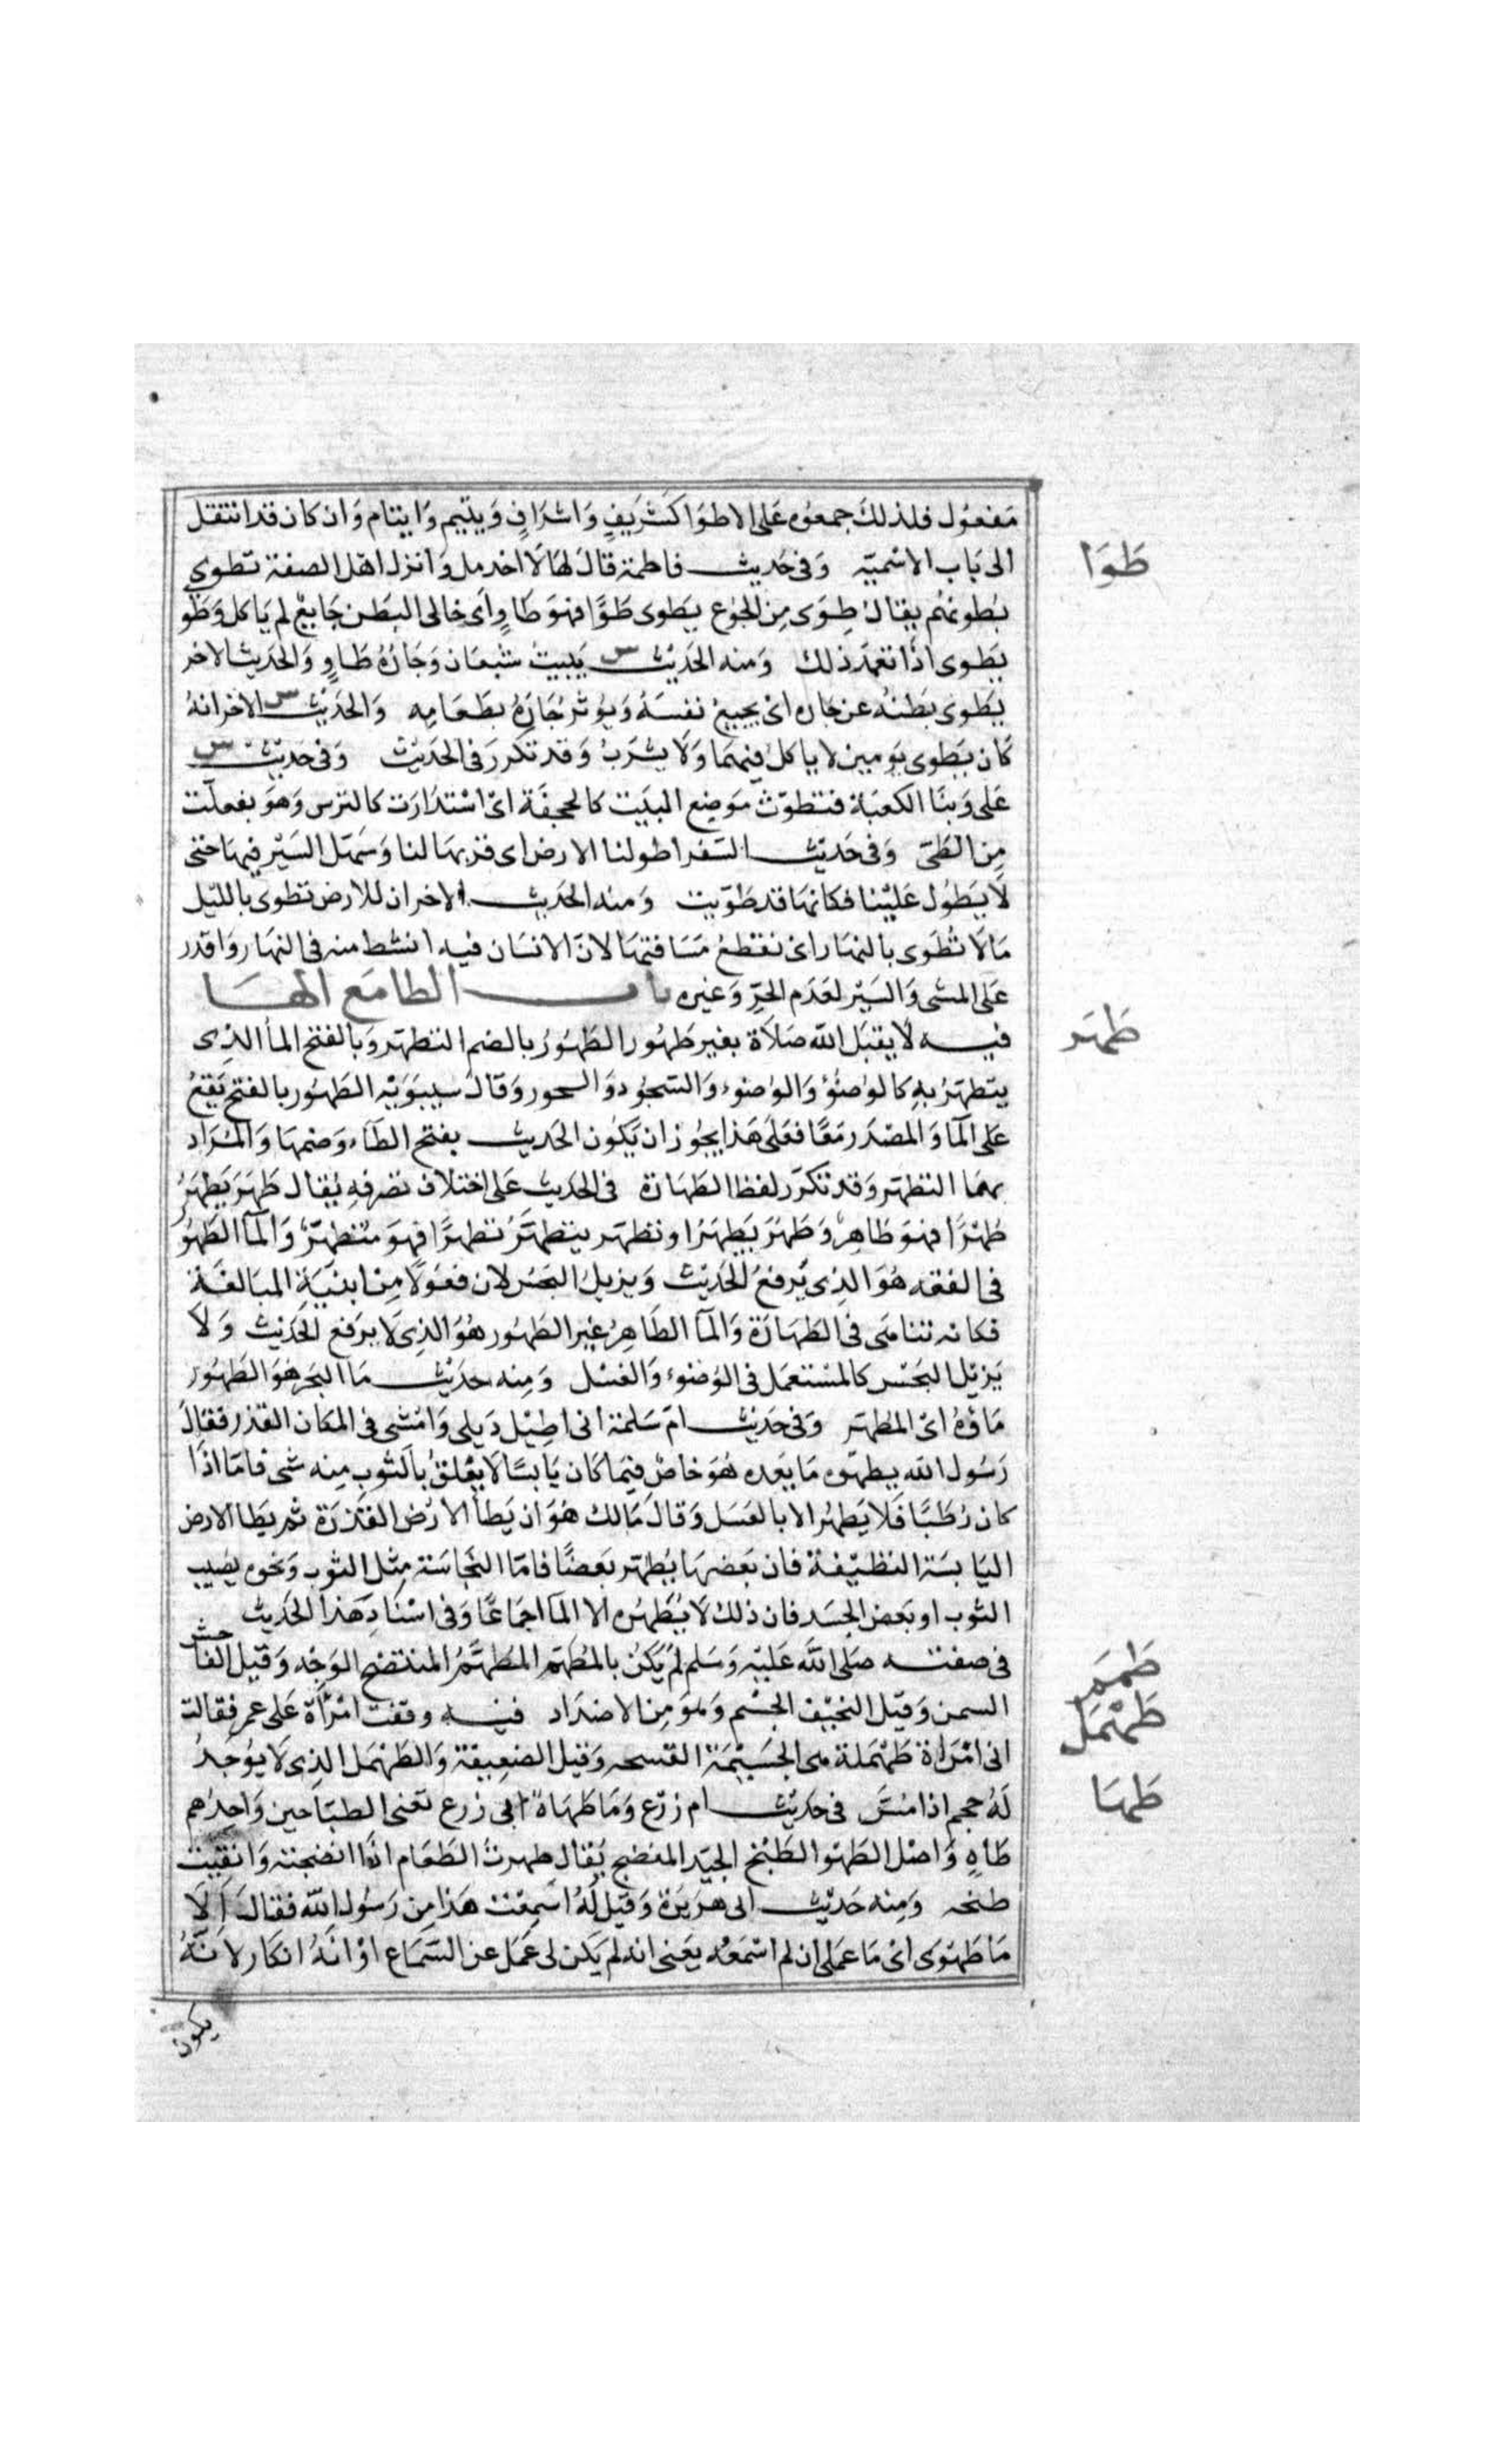 مَفعُول فلذلكَ جمعُوه عَلى الاطوَا كَشَريفٍ وَاشرَافٍ وَيتيم وَايتام وَان كان قد انتقل
الى بَاب الاسْميّه وَفى حَديث فاطمة قالَ لهَا لَا اخدمك وَاتزك اهْل الصفة تطوى
طَوَا
بُطونهُم يقالُ طِوَى مِن الجُوع يَطوى طَوًا فهوَ طَاوٍ اَى خالى البَطن جَايعْ لم يَاكل وَطَو
يَطوى اذَا تعمّد ذلك وَمنه الحَديْث س يَبيتُ شبْعَان وَجَارُهُ طَاوٍ وَالحَديث الاخر
يَطوى بَطنهُ عن جَاره اىْ يُجيعُ نفسَهُ وَيُوثرُ جَارَهُ بطَعَامِه وَالحَديْث س الاخر انهُ
كَان يَطوى يَومين لا ياكلُ فيهمَا وَلَا يشرَبُ وَقد تكرّرَ فى الحَديْث وَفى حَديْث س
عَلى وَبنَا الكعبَة فتطوّتْ مَوضِع البَيت كالحجفَة اىْ اسْتدَارَت كالترس وَهوَ بفعلّت
مِن الطَىّ وَفى حَديْث السّفر اطولنا الارض اى قرّبهَا لنا وَسَهّل السَيْر فيهَا حَتى
لَا يَطُول عَليْنا فكانهَا قد طوّيت وَمنه الحَديث الاخر ان للارض تطوى بالليْل
مَالَا تُطوَى بالنهَار اى تقطعُ مَسَافتهَا لانّ الانسَان فيه انشط منه فى النهَار وَاقدر
عَلى المشى وَالسَيْر لعَدَم الحَرِّ وَغيره باب الطا مَع الهَا
فيه لَا يقبَل الله صَلاَة بغير طَهُور الطَهُورُ بالضم التطهّر وَبالفتح المأ الذِى
طَهَر
يتطهّرُ بهِ كالوُضوُء وَالوُضوء وَالسّجُود وَالسحور وَقالَ سيبَوَيْه الطَهُور بالفتح يَقعُ
عَلى المآ وَالمصْدَر مَعًا فعَلى هَذا يجُوزُ ان يَكُون الحَديث بفتح الطَاء وَضمهَا وَالمُرَاد
بهمَا التطهّر وَقد تكَرّر لفظ الطَهَارة فى الحَديث عَلى اختلاف تصَرفهِ يُقال طَهَرَ يَطهَرُ
طُهْرًا فهوَ طَاهِرٌ وَطَهُرَ يَطهَرُ او تطهّر يتطهَّرُ تطهرًا فهوَ مُتطهرٌ وَالمآ الطَهُوُ
فى الفقه هُوَ الذِى يَرفعُ الحَديْث وَيزيلُ النجَسُ لان فعُولًا مِنْ ابنيَةِ المبَالغَة
فكانه تنَامىَ فى الطَهَارَة وَالمآ الطَاهِرُ غير الطَهُور هُوَ الذِى لَا يَرفع الحَديث وَلا
يَزيْل النجَس كالمسْتعمَل فى الوُضوْء وَالغسْل وَمِنه حَديْث مَا البَحر هوَ الطَهُور
مَاؤهُ اىْ المُطهّر وَفى حَديْث امّ سَلمَة انى اطِيْل ذَيلى وَامْشى فى المكان القذر فقالَ
رَسُول الله يطهّره مَا بَعده هُوَ خاصٌ فيمَا كان يَابسًا لَا يَعْلقُ بالثوب مِنه شى فامّا اذَا
كان رُطَبًا فَلا يَطهُر الا بالغسَل وَقالَ مَالك هُوَ ان يَطأ الارْض القذرَة ثم يَطا الارض
اليَابسَة النظيْفة فان بَعضهَا يُطهّر بَعضًا فامّا النّجَاسَة مِثل الثوب وَنحوه يصِيب
الثوب او بَعض الجسَد فان ذلك لَا يُطَهّره الا المآ اجمَاعًا وَفى اسْنَادِ هَذا الحَديث
فى صفته صَلى الله عَليْه وَسَلم لمْ يَكنْ بالمُطَهّم المُطهّمُ المنتفخ الوَجْه وَقيل الفاحش
طَهمَ
السمن وَقيْل النحيْف الجسْم وَهوَ مِن الاضدَاد فيه وقفت امْرَأة عَلى عمر فقالت
طَهْمَل
انى امْرَاة طَهْمَلة هى الجسَيْمَة القبيحه وَقيل الضعِيفة وَالطَهْمَل الذِى لَا يُوجَدُ
لهُ حجم اذا مُسّ فى حَديْث ام زرْع وَمَا طَهَاة ابى زرع تعنى الطبّاحين وَاحِدُهم
طَهَا
طَاهٍ وَاصْل الطَهْو الطَبْخ الجيّد المنضج يُقال طهرتُ الطَعَام اذَا انضجته وَاتقيْت
طبخه وَمِنه حَديْث ابى هرَيرَة وَقيْل لهُ اسَمِعْت هَذا مِن رَسُول الله فقالَ الَا
مَا طَهْوى اىْ مَا عَمَلى ان لم اسْمَعْه يَعنى انه لم يَكن لى عَمَل عن السّمَاع اوْ انّهُ انكار لانّهُ
يكون